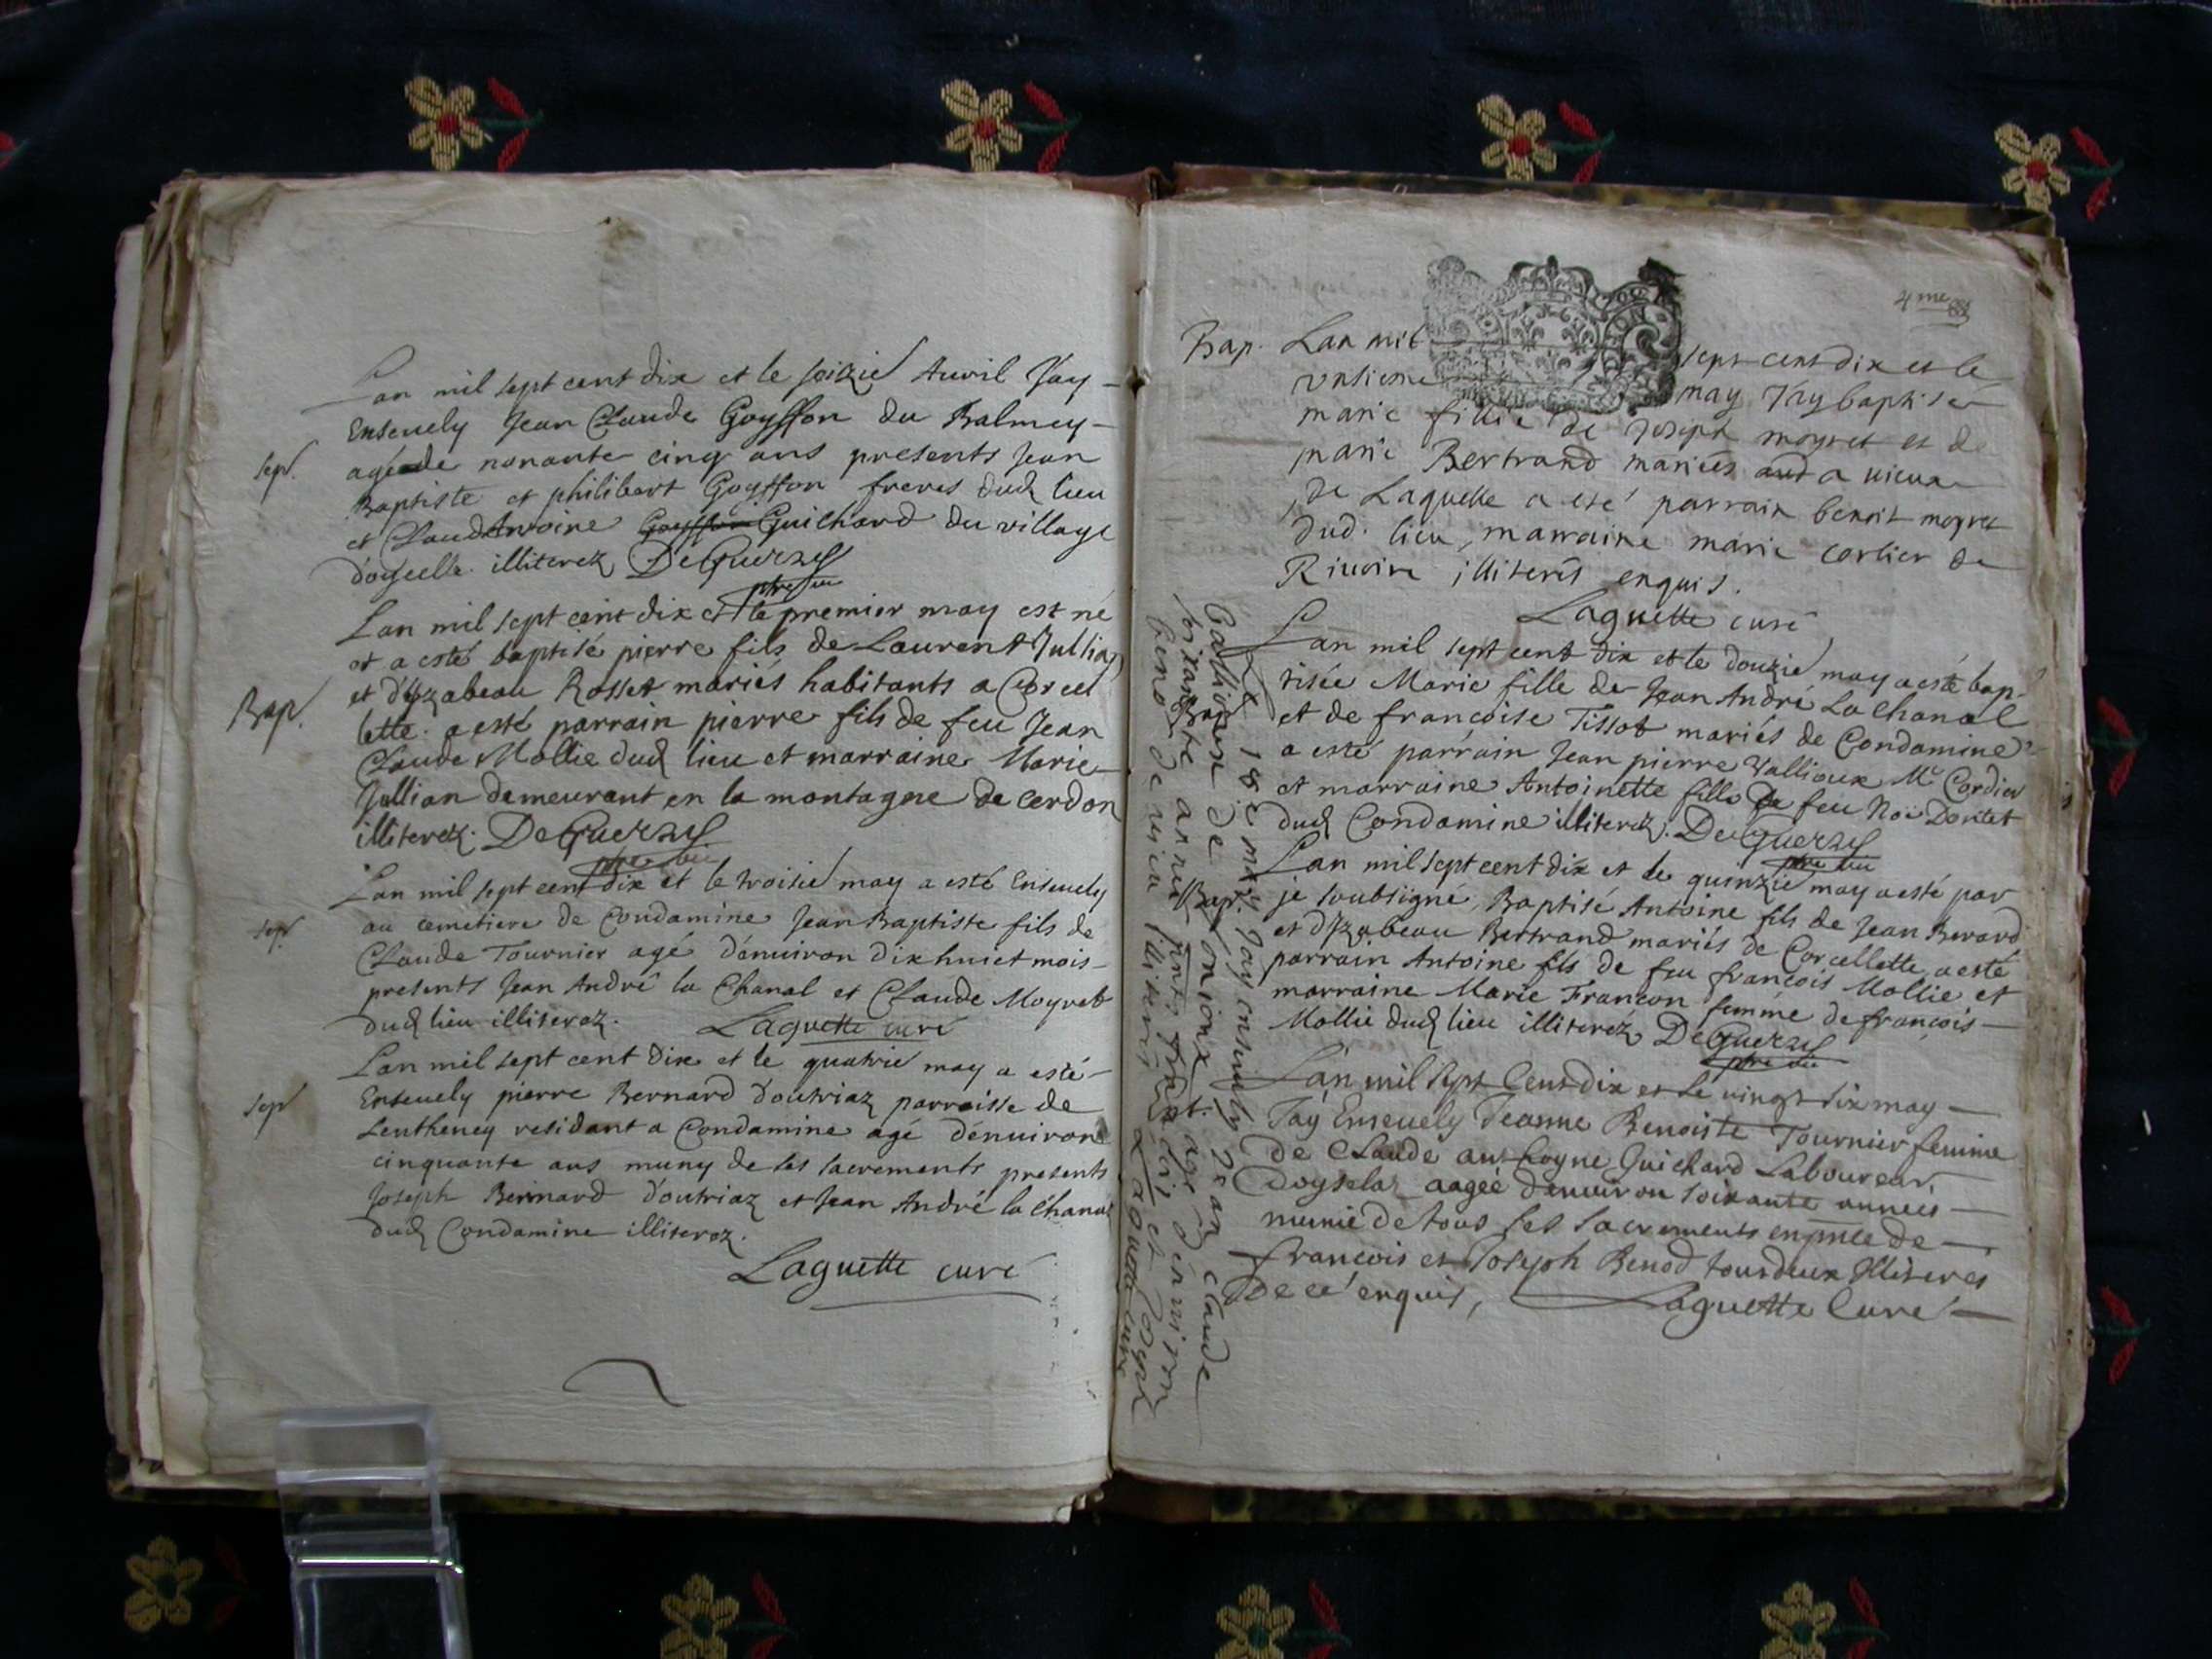 Lan mil sept cent dix et le seizie Auvil Jay
Enseuely Jean Claude Goyffon du Balmey
sep.
agé de nonante cinq ans presents Jean
Baptiste et philibert Goyffon freres dud lieu
et Claud Antoine Goyffon Guichard du village
d'oyselle illiterez DeGuerzy
ptre vic
Lan mil sept cent dix et le premier may est né
et a esté baptisé pierre fils de Laurent Jullian
et d'yzabeau Rosset mariés habitants a Corcel
Bap.
lette. a esté parrain pierre fils de feu Jean
Claude Mollie dud lieu et marraine Marie
Jullian demeurant en la montagne de Cerdon
illiterez. DeGuerzy
ptre vic
Lan mil sept cent dix et le troisie may a esté Enseuely
sep
au cemetiere de Condamine Jean Baptiste fils de
Claude Tournier agé d'enuiron dix huict mois
presents Jean André la Chanal et Claude Moyret
dud lieu illiterez. Laguette curé
Lan mil sept cent dix et le quatrie may a esté
sep
Enseuely pierre Bernard d'outriaz parroisse de
Lentheney residant a Condamine agé d'enuiron
cinquante ans muny de ses sacrements presents
Joseph Bernard d'outriaz et Jean André la Chanal
dud Condamine illiterez.
Laguette curé
4me
Bap. Lan mil sept cent dix et le
vnsieme may J'ay baptisé
marie fillie de Joseph moyret et de
marie Bertrand mariés aud a uieux
de Laquelle a esté parrain benoit moyret
dud. lieu, marraine marie corlier de
Riuoire illiterés enquis.
Laguette curé
Lan mil sept cent dix et le douzie may a esté bap-
Bap.
tisée Marie fille de Jean André La Chanal
et de françoise Tissot mariés de Condamine
a esté parrain Jean pierre Vallioux Me Cordier
et marraine Antoinette fille de feu Noë
dud Condamine illiterez. DeGuerzy
ptre vic
Lan mil sept cent dix et le quinzie may a esté par
Bap.
je soubsigné, Baptisé Antoine fils de Jean Berard
et d'Yzabeau Bertrand mariés de Corcellette a esté
parrain Antoine fils de feu françois Mollie et
marraine Marie Françon femme de françois
Mollie dud lieu illiterez DeGuerzy
ptre vic
L'an mil sept Cent dix et le vingt six may
J'ay Enseuely Jeanne Benoiste Tournier femme
de Claude anthoyne Guichard Laboureur
doyselaz aagée d'enuiron soixante années
munie de tous ses sacrements en pnce de
francois et Joseph Benod tous deux Illiteres
de ce enquis, Laguette Curé
Le 18e may J'ay enseuely Jean claude
soixante années
benod de uieu illiterés Laguette curé